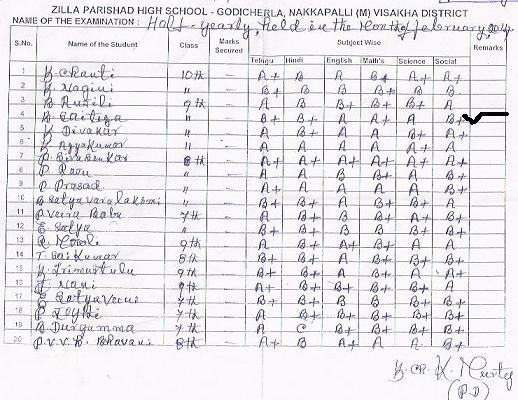 ZILLA PARISHAD HIGH SCHOOL - GODICHERLA, NAKKAPALLI (M) VISAKHA DISTRICT
NAME OF THE EXAMINATION : Half-yearly, held in the Month of february, 
S.No. Name of the Student Class Marks Secured Subject Wise Remarks
Telugu Hindi English Math's Science Social
1 K. Chanti 10th — A+ B A B+ A+ A+
2 K. Nagini " — B B B B+ B B
3 B. 9th — A B B+ B+ B+ A
4 B. " — B+ B+ A A+ A B+
5 K. Divakar " — A B+ A A B+ A+
6 K. Ayyakumar " — A A A B+ A A
7 P. Sivasankar 8th — A+ A+ A+ A+ A+ A+
8 P. Raou " — A A B B+ A B+
9 P. Prasad " — A+ A A A A B+
10 B. Satyavaralakshmi " — B+ B+ A B+ B+ A
11 P. Veera Babu 7th — A B+ B B+ A+ B+
12 E. Satya " — B+ B+ B B+ A B+
13 R. Mouli 9th — A B+ A+ B+ A A
14 T. Sai Kumar 8th — B+ A A B+ A B+
15 K. Trimurtulu 9th — B+ B+ A B+ A A+
16 J. Mani 9th — A+ B+ B+ B+ A B+
17 E. Satyaveni 7th — B+ B+ B B B+ B+
18 P. Jyothi 7th — A A B+ B+ A B+
19 B. Durgamma 7th — A C B+ B+ B+ B+
20 P.V.V.B. Bhavani 8th — A+ B A+ A A B+
K. Ch. K. Murty
(P.D)